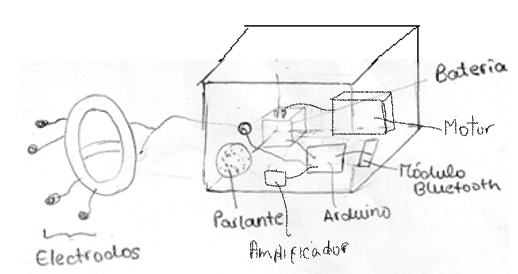 Bateria
Motor
Módulo
Bluetooth
Parlante
Arduino
Amplificador
Electrodos